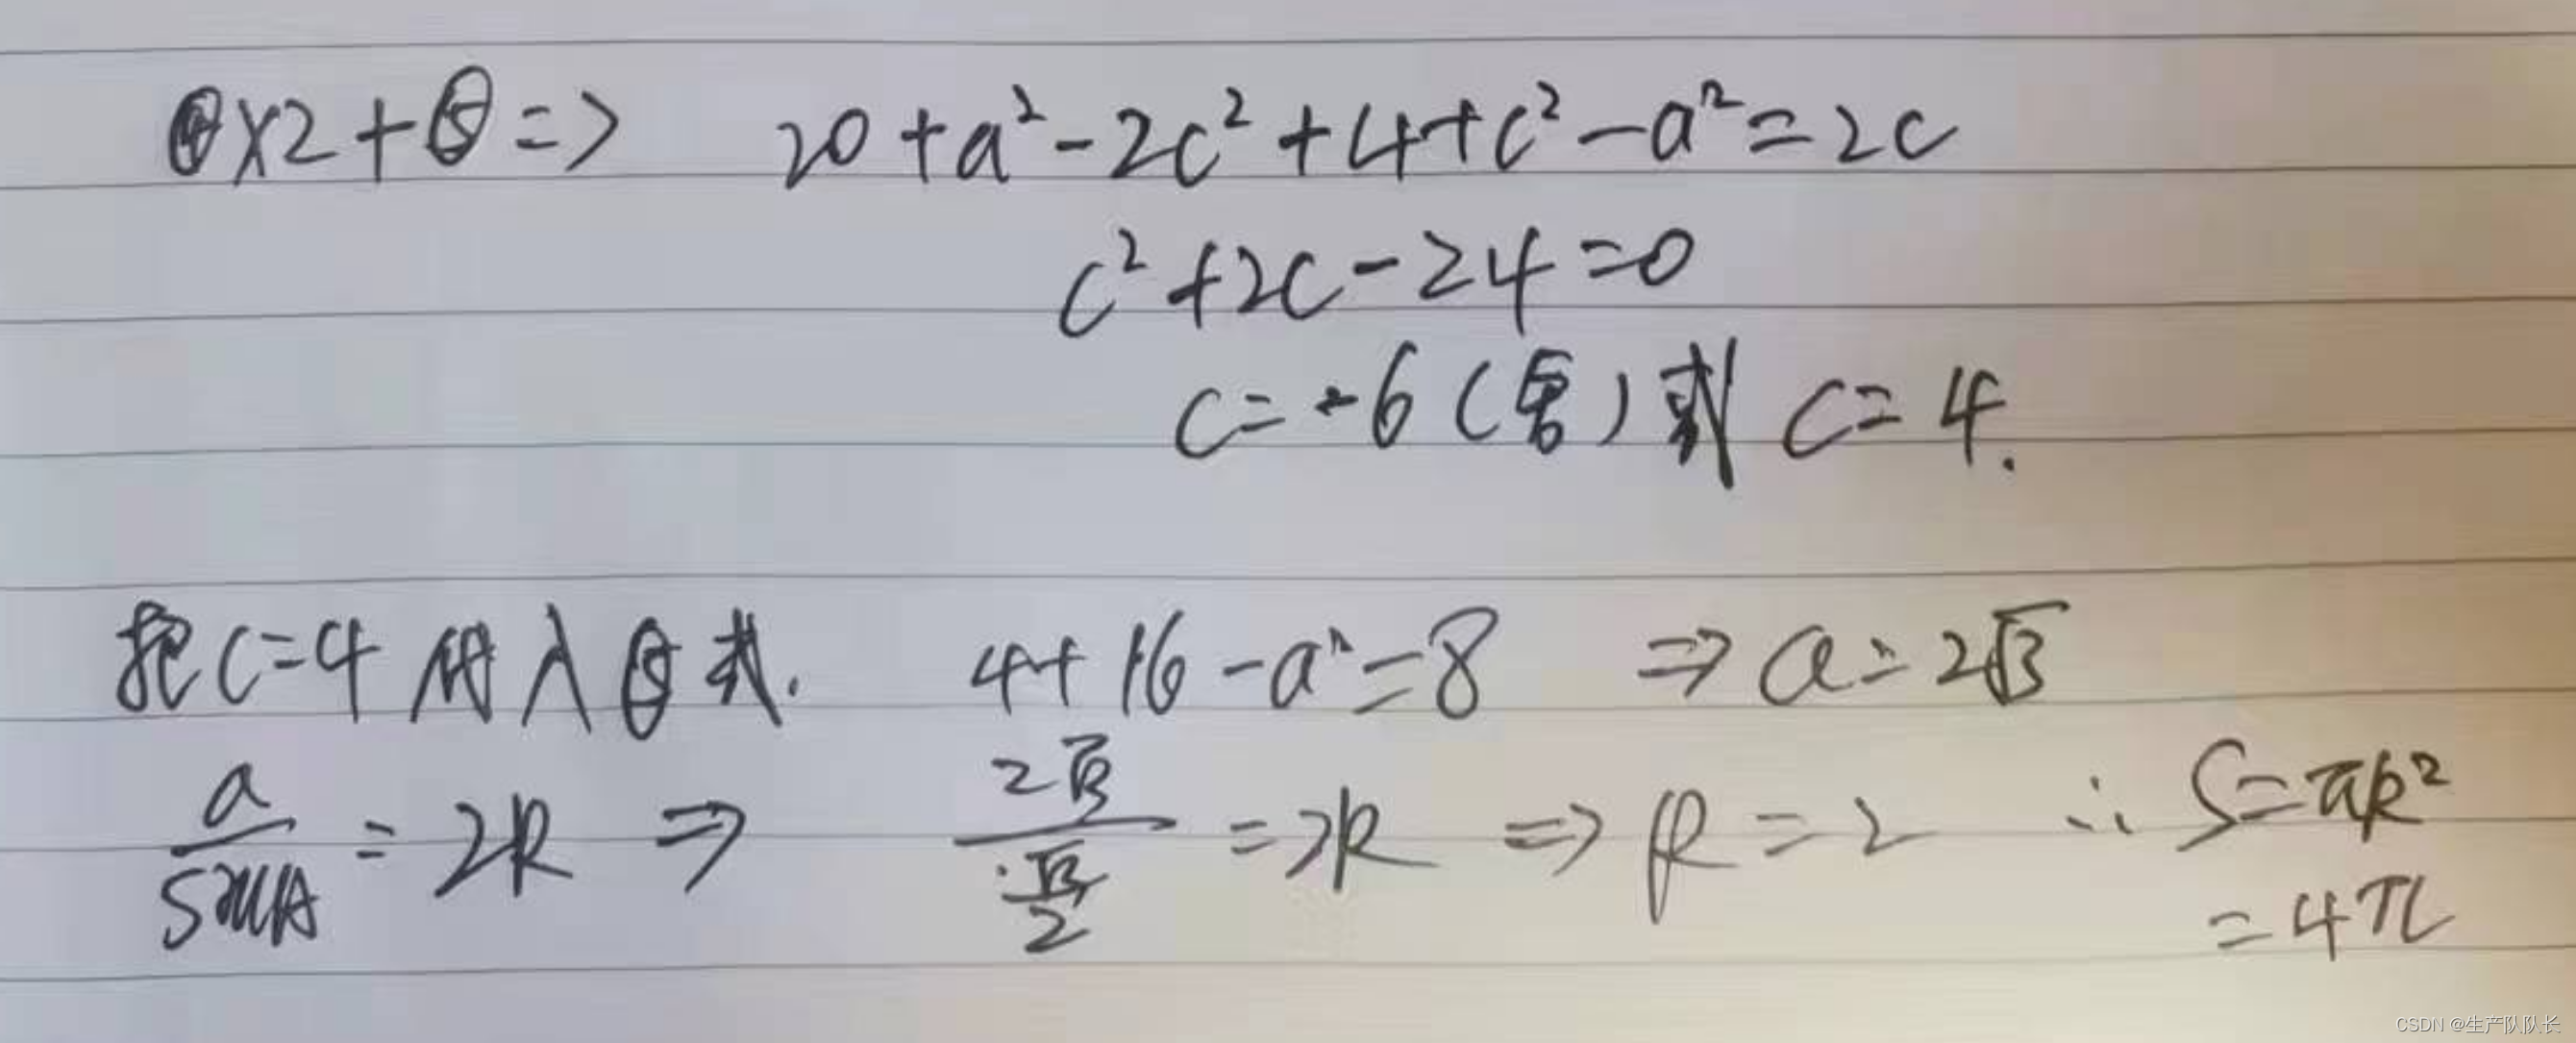 ④×2+⑤=> 20+a²-2c²+4+c²-a²=2c
c²+2c-24=0
c=-6(舍)或 c=4.
把c=4代入⑤式. 4+16-a²=8 => a=2√3
a/sinA=2R => 2√3/(√3/2)=2R => R=2 ∴ S=πR²
=4π
CSDN @生产队队长